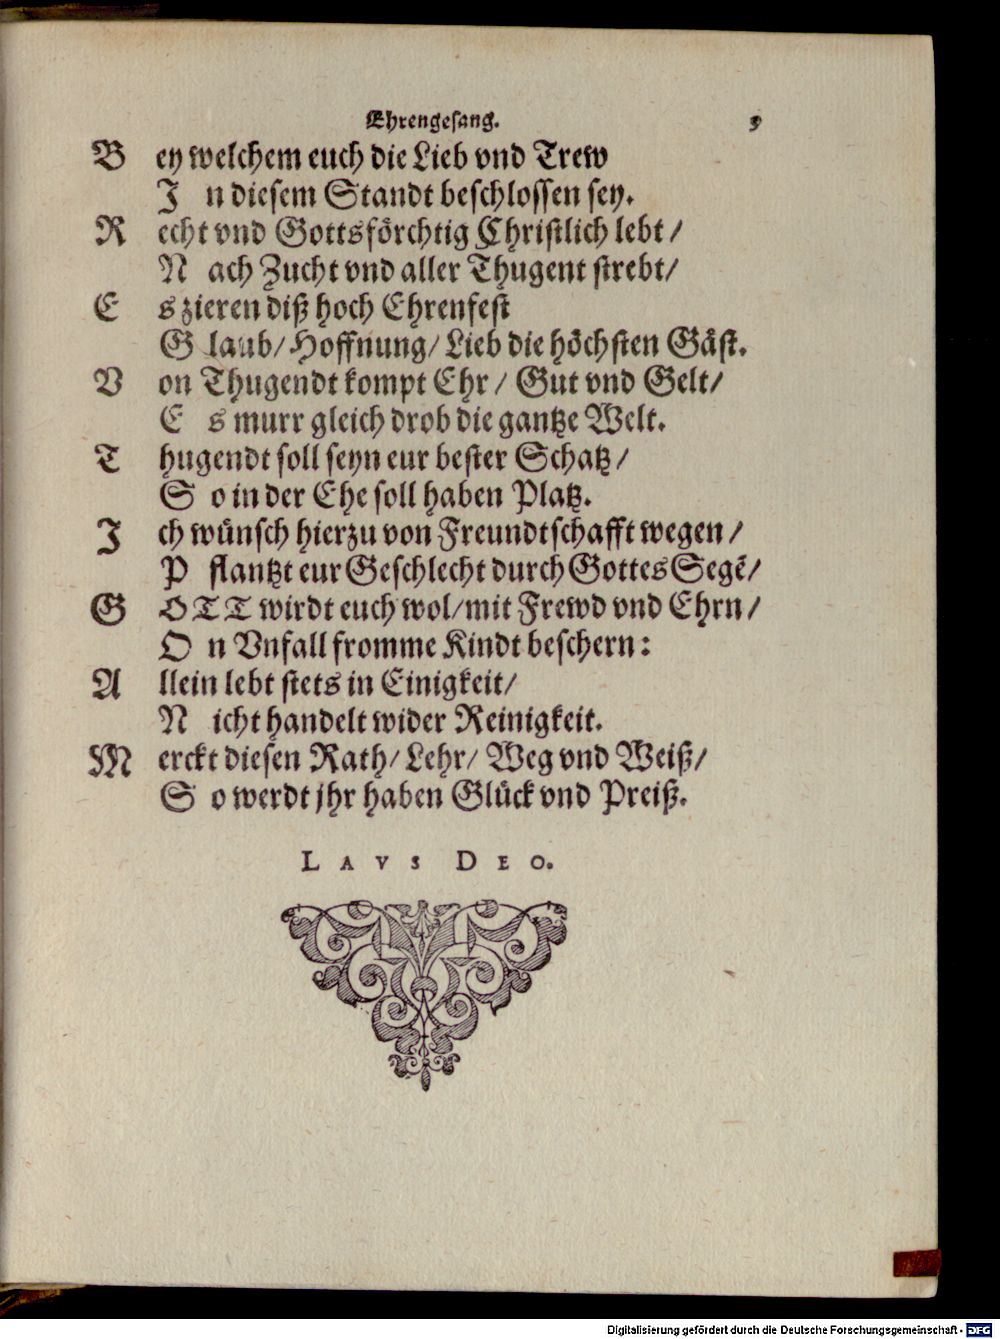 Ehrengesang. 5
Bey welchem euch die Lieb vnd Trew
In diesem Standt beschlossen sey.
Recht vnd Gottsförchtig Christlich lebt/
Nach Zucht vnd aller Thugent strebt/
Es zieren diß hoch Ehrenfest
Glaub/ Hoffnung/ Lieb die höchsten Gäst.
Von Thugendt kompt Ehr/ Gut vnd Gelt/
Es murr gleich drob die gantze Welt.
Thugendt soll seyn eur bester Schatz/
So in der Ehe soll haben Platz.
Ich wünsch hierzu von Freundtschafft wegen/
Pflantzt eur Geschlecht durch Gottes Segẽ/
GOTT wirdt euch wol/ mit Frewd vnd Ehrn/
On Vnfall fromme Kindt beschern:
Allein lebt stets in Einigkeit/
Nicht handelt wider Reinigkeit.
Merckt diesen Rath/ Lehr/ Weg vnd Weiß/
So werdt jhr haben Glück vnd Preiß.
LAVS DEO.
Digitalisierung gefördert durch die Deutsche Forschungsgemeinschaft - DFG